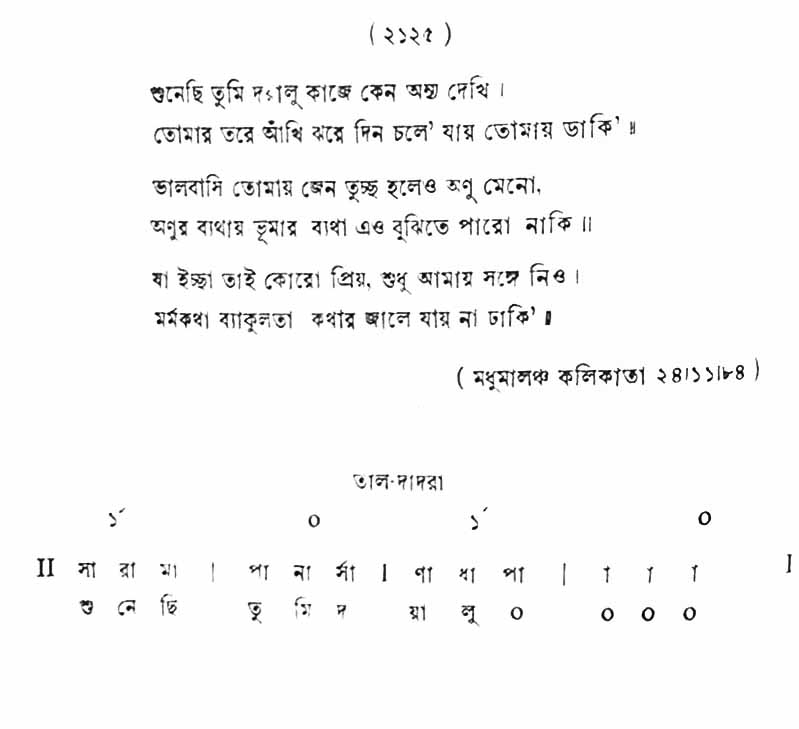 ( ২১২৫ )
শুনেছি তুমি দয়ালু কাজে কেন অন্য দেখি ।
তোমার তরে আঁখি ঝরে দিন চলে' যায় তোমায় ডাকি' ॥
ভালবাসি তোমায় জেন তুচ্ছ হলেও অণু মেনো,
অণুর ব্যথায় ভূমার ব্যথা এও বুঝিতে পারো নাকি ॥
যা ইচ্ছা তাই কোরো প্রিয়, শুধু আমায় সঙ্গে নিও ।
মর্মকথা ব্যাকুলতা কথার জালে যায় না ঢাকি' ॥
( মধুমালঞ্চ কলিকাতা ২৪।১১।৮৪ )
তাল-দাদরা
১´ ০ ১´ ০
II সা রা মা | পা না র্সা I ণা ধা পা | া া া I
শু নে ছি তু মি দ য়া লু ০ ০ ০ ০